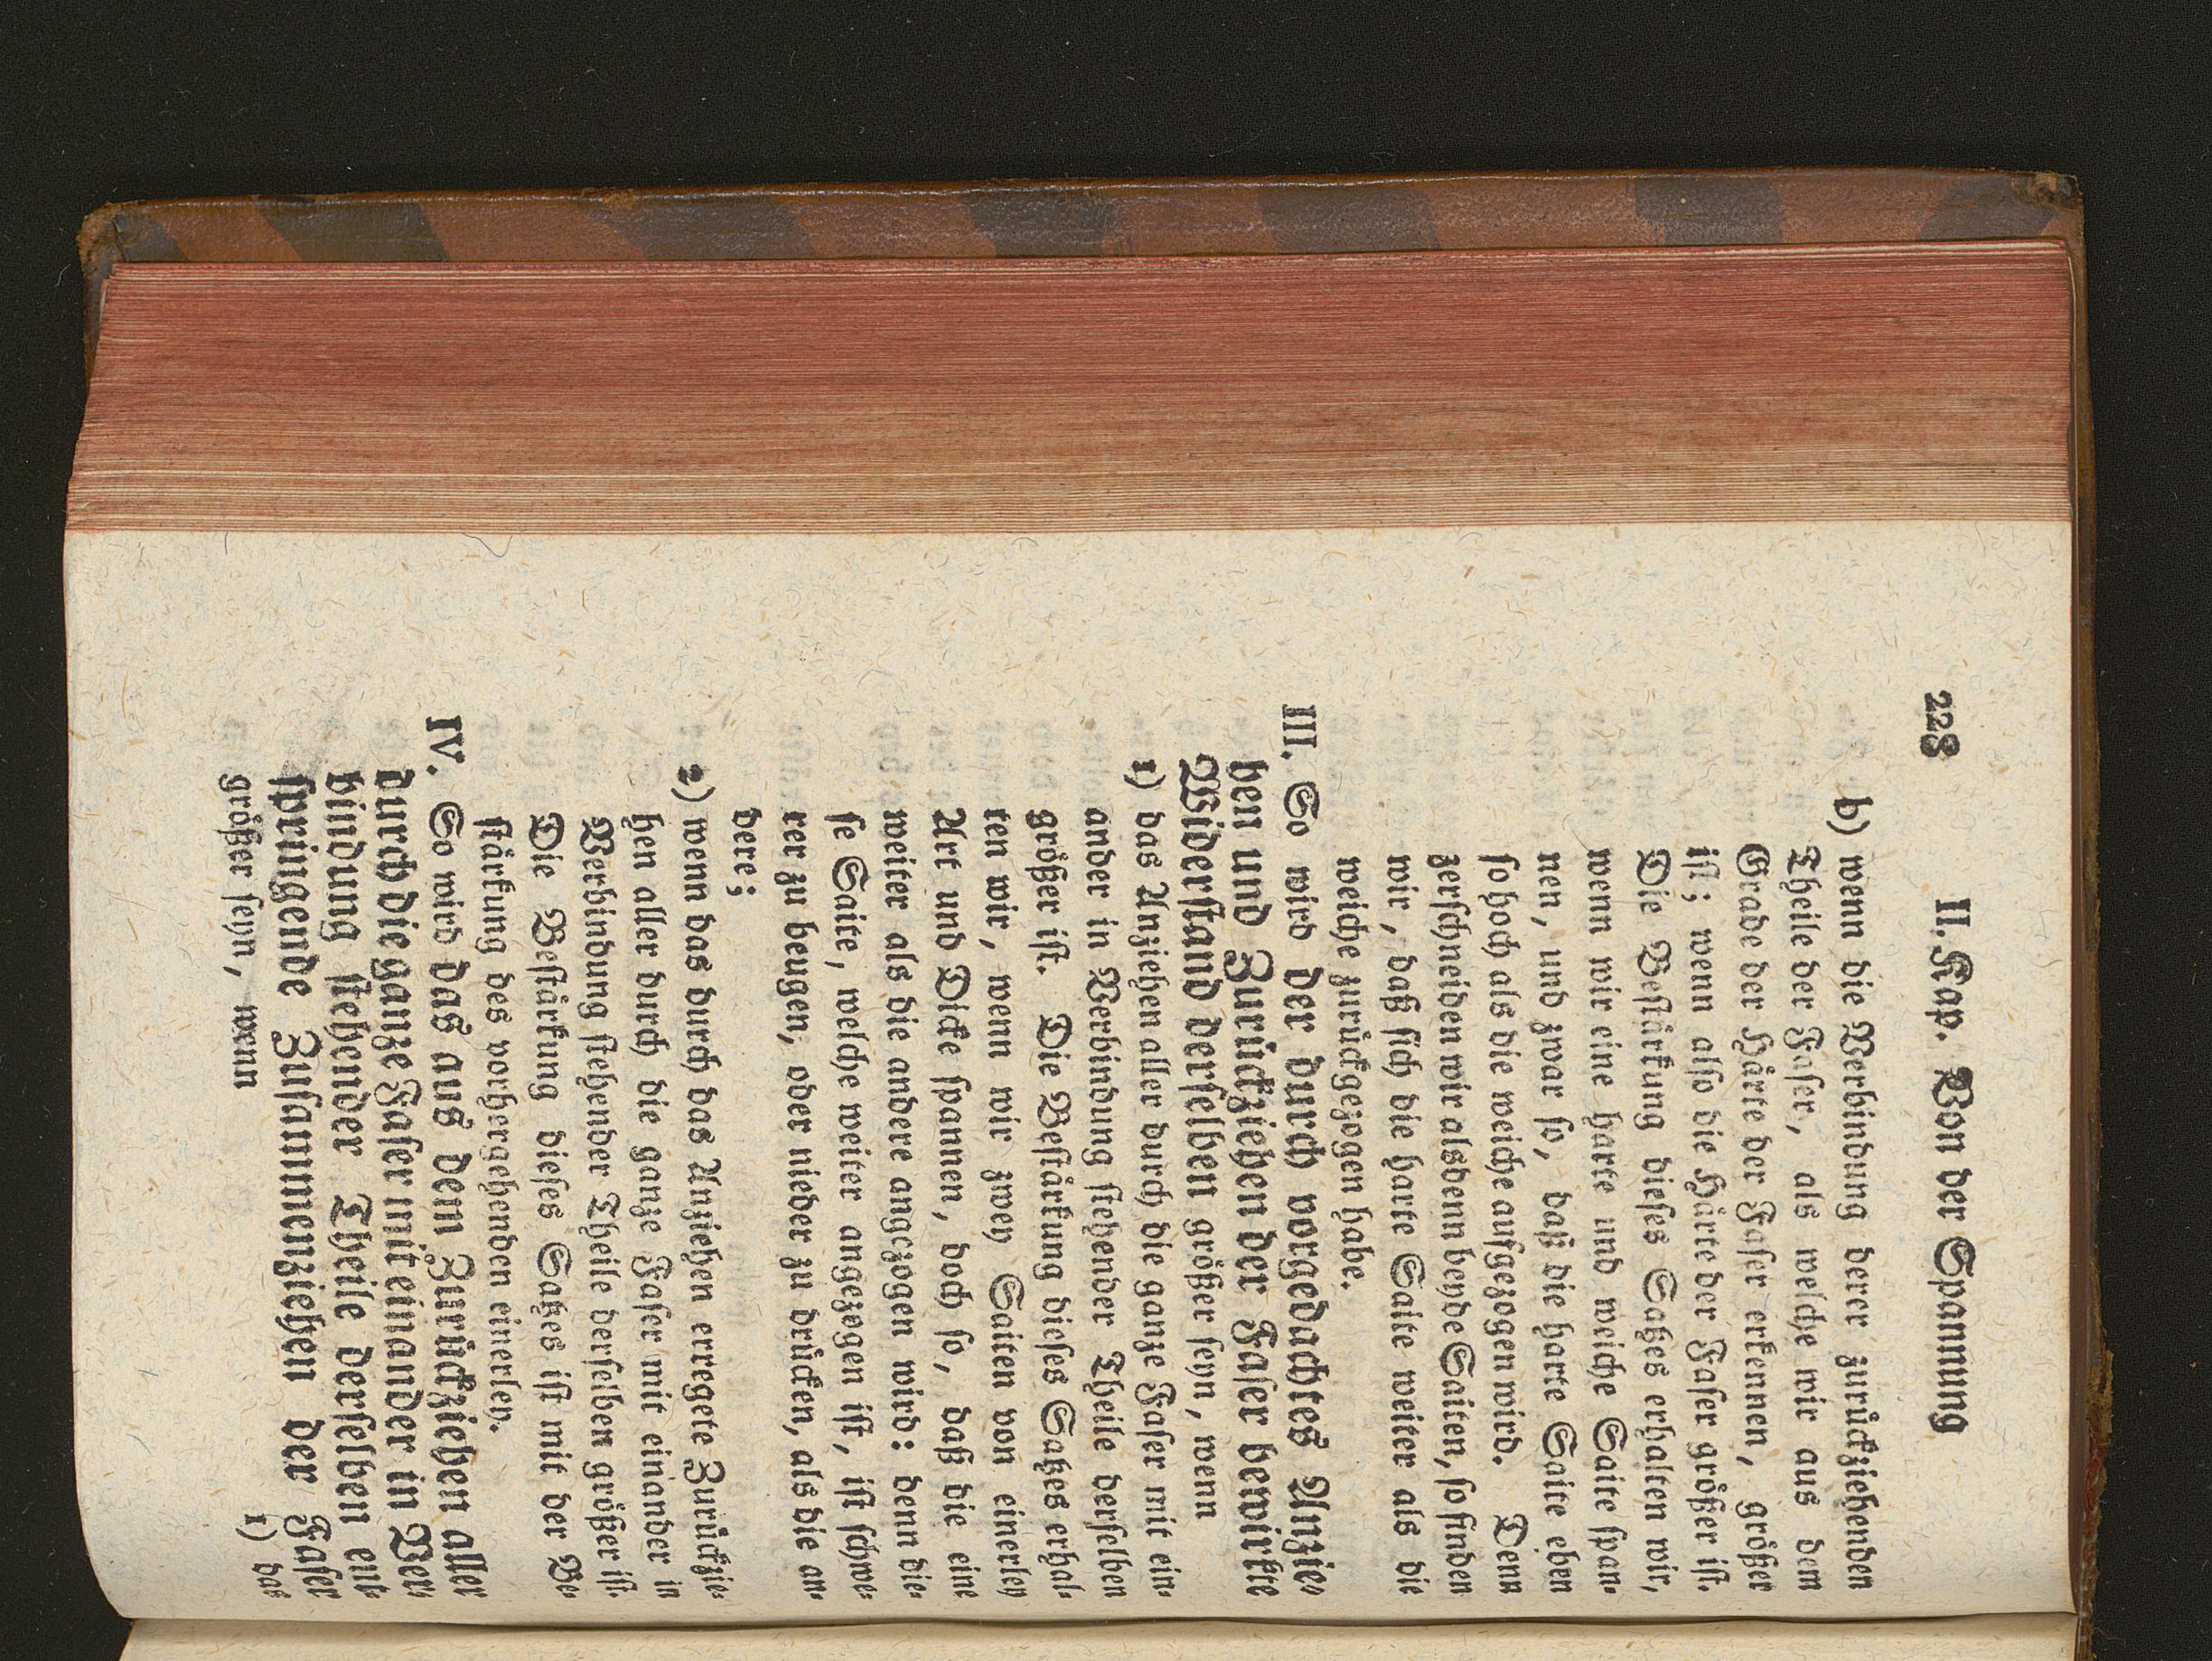 228 II. Kap. Von der Spannung
b) wenn die Verbindung derer zurückziehenden
Theile der Faser, als welche wir aus dem
Grade der Härte der Faser erkennen, größer
ist; wenn also die Härte der Faser größer ist.
Die Bestärkung dieses Satzes erhalten wir,
wenn wir eine harte und weiche Saite span-
nen, und zwar so, daß die harte Saite eben
so hoch als die weiche aufgezogen wird. Denn
zerschneiden wir alsdenn beyde Saiten, so finden
wir, daß sich die harte Saite weiter als die
weiche zurückgezogen habe.
III. So wird der durch vorgedachtes Anzie-
hen und Zurückziehen der Faser bewirkte
Widerstand derselben größer seyn, wenn
1) das Anziehen aller durch die ganze Faser mit ein-
ander in Verbindung stehender Theile derselben
größer ist. Die Bestärkung dieses Satzes erhal-
ten wir, wenn wir zwey Saiten von einerley
Art und Dicke spannen, doch so, daß die eine
weiter als die andere angezogen wird: denn die-
se Saite, welche weiter angezogen ist, ist schwe-
rer zu beugen, oder nieder zu drücken, als die an-
dere;
2) wenn das durch das Anziehen erregete Zurückzie-
hen aller durch die ganze Faser mit einander in
Verbindung stehender Theile derselben größer ist.
Die Bestärkung dieses Satzes ist mit der Be-
stärkung des vorhergehenden einerley.
IV. So wird das aus dem Zurückziehen aller
durch die ganze Faser mit einander in Ver-
bindung stehender Theile derselben ent-
springende Zusammenziehen der Faser
größer seyn, wenn
1) das